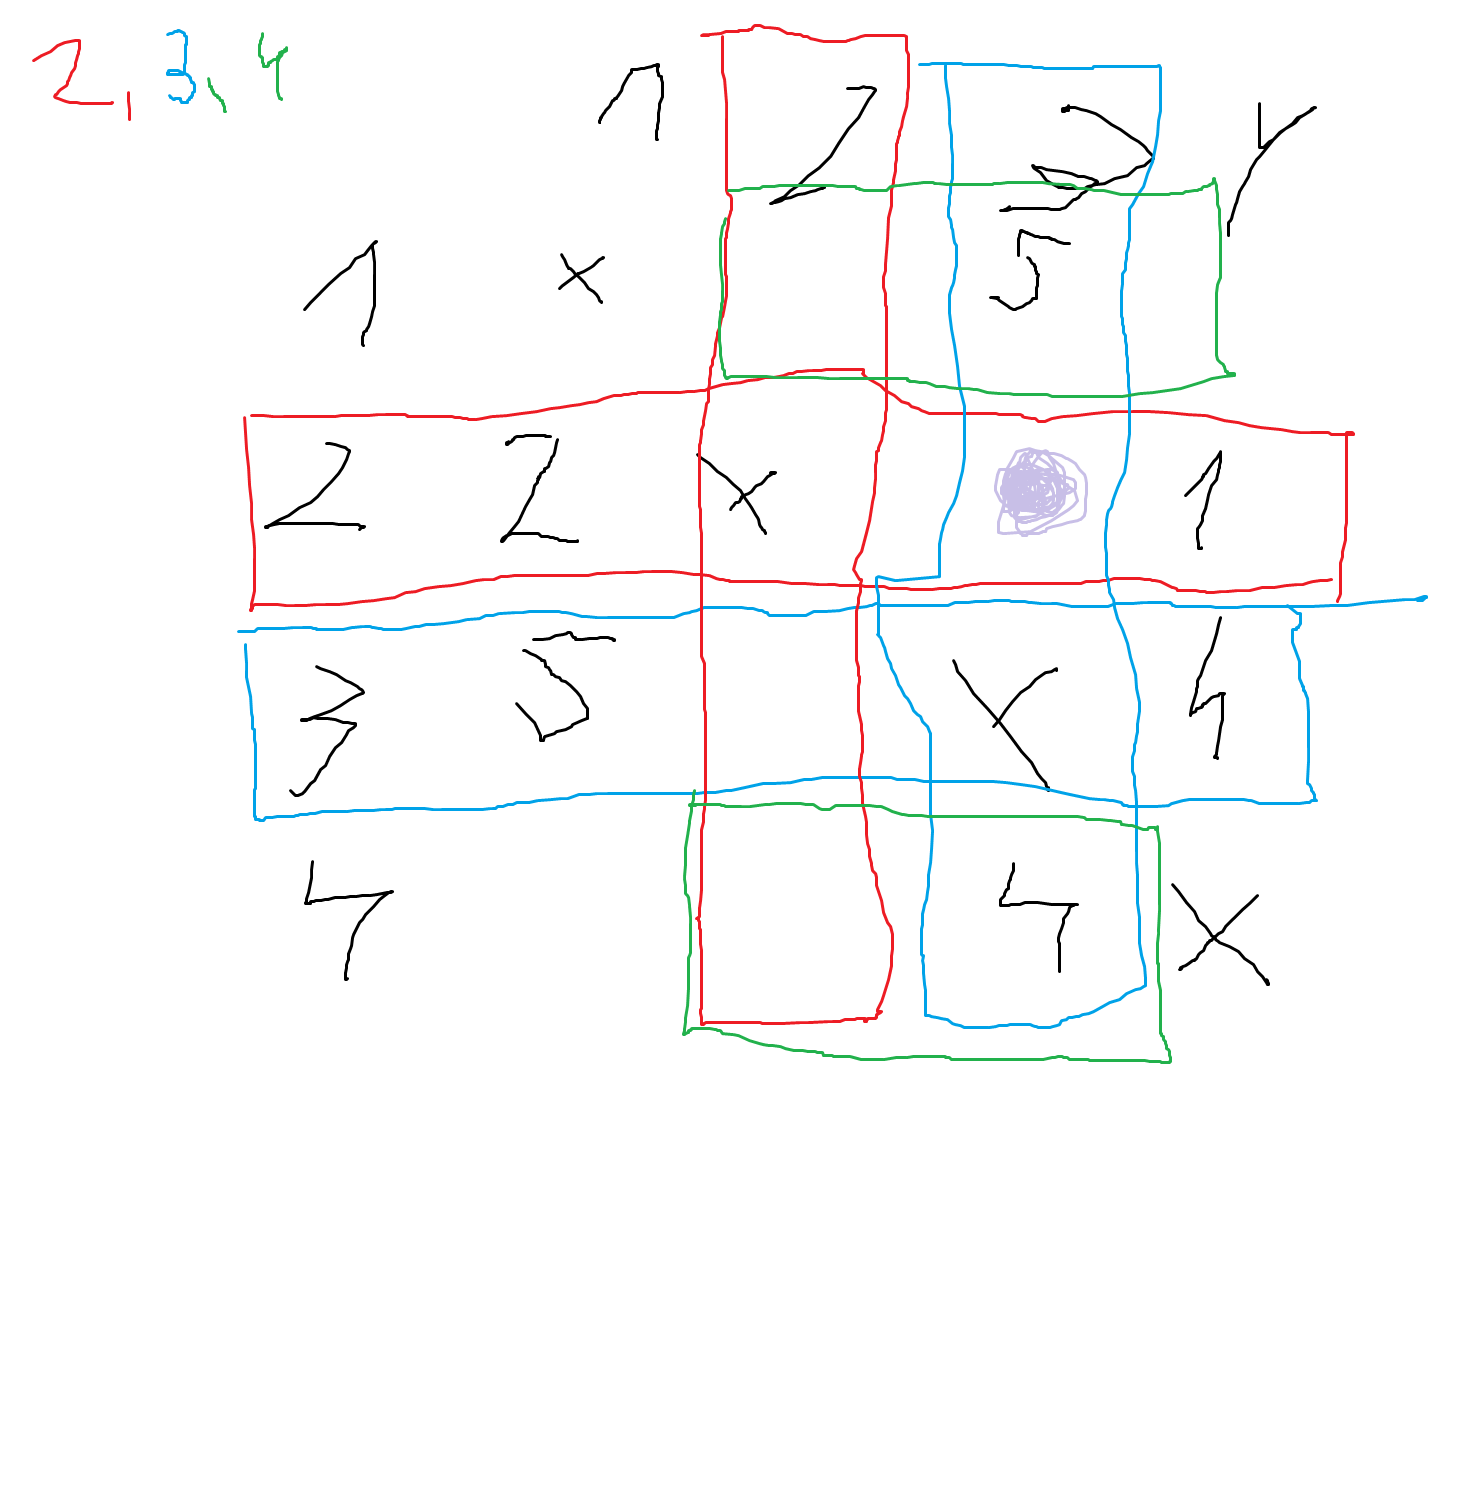 2, 3, 4
1 2 3 4
1 x 5
2 2 x 1
3 5 x 4
4 4 x